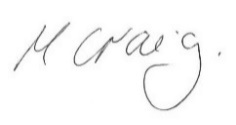 M Craig.